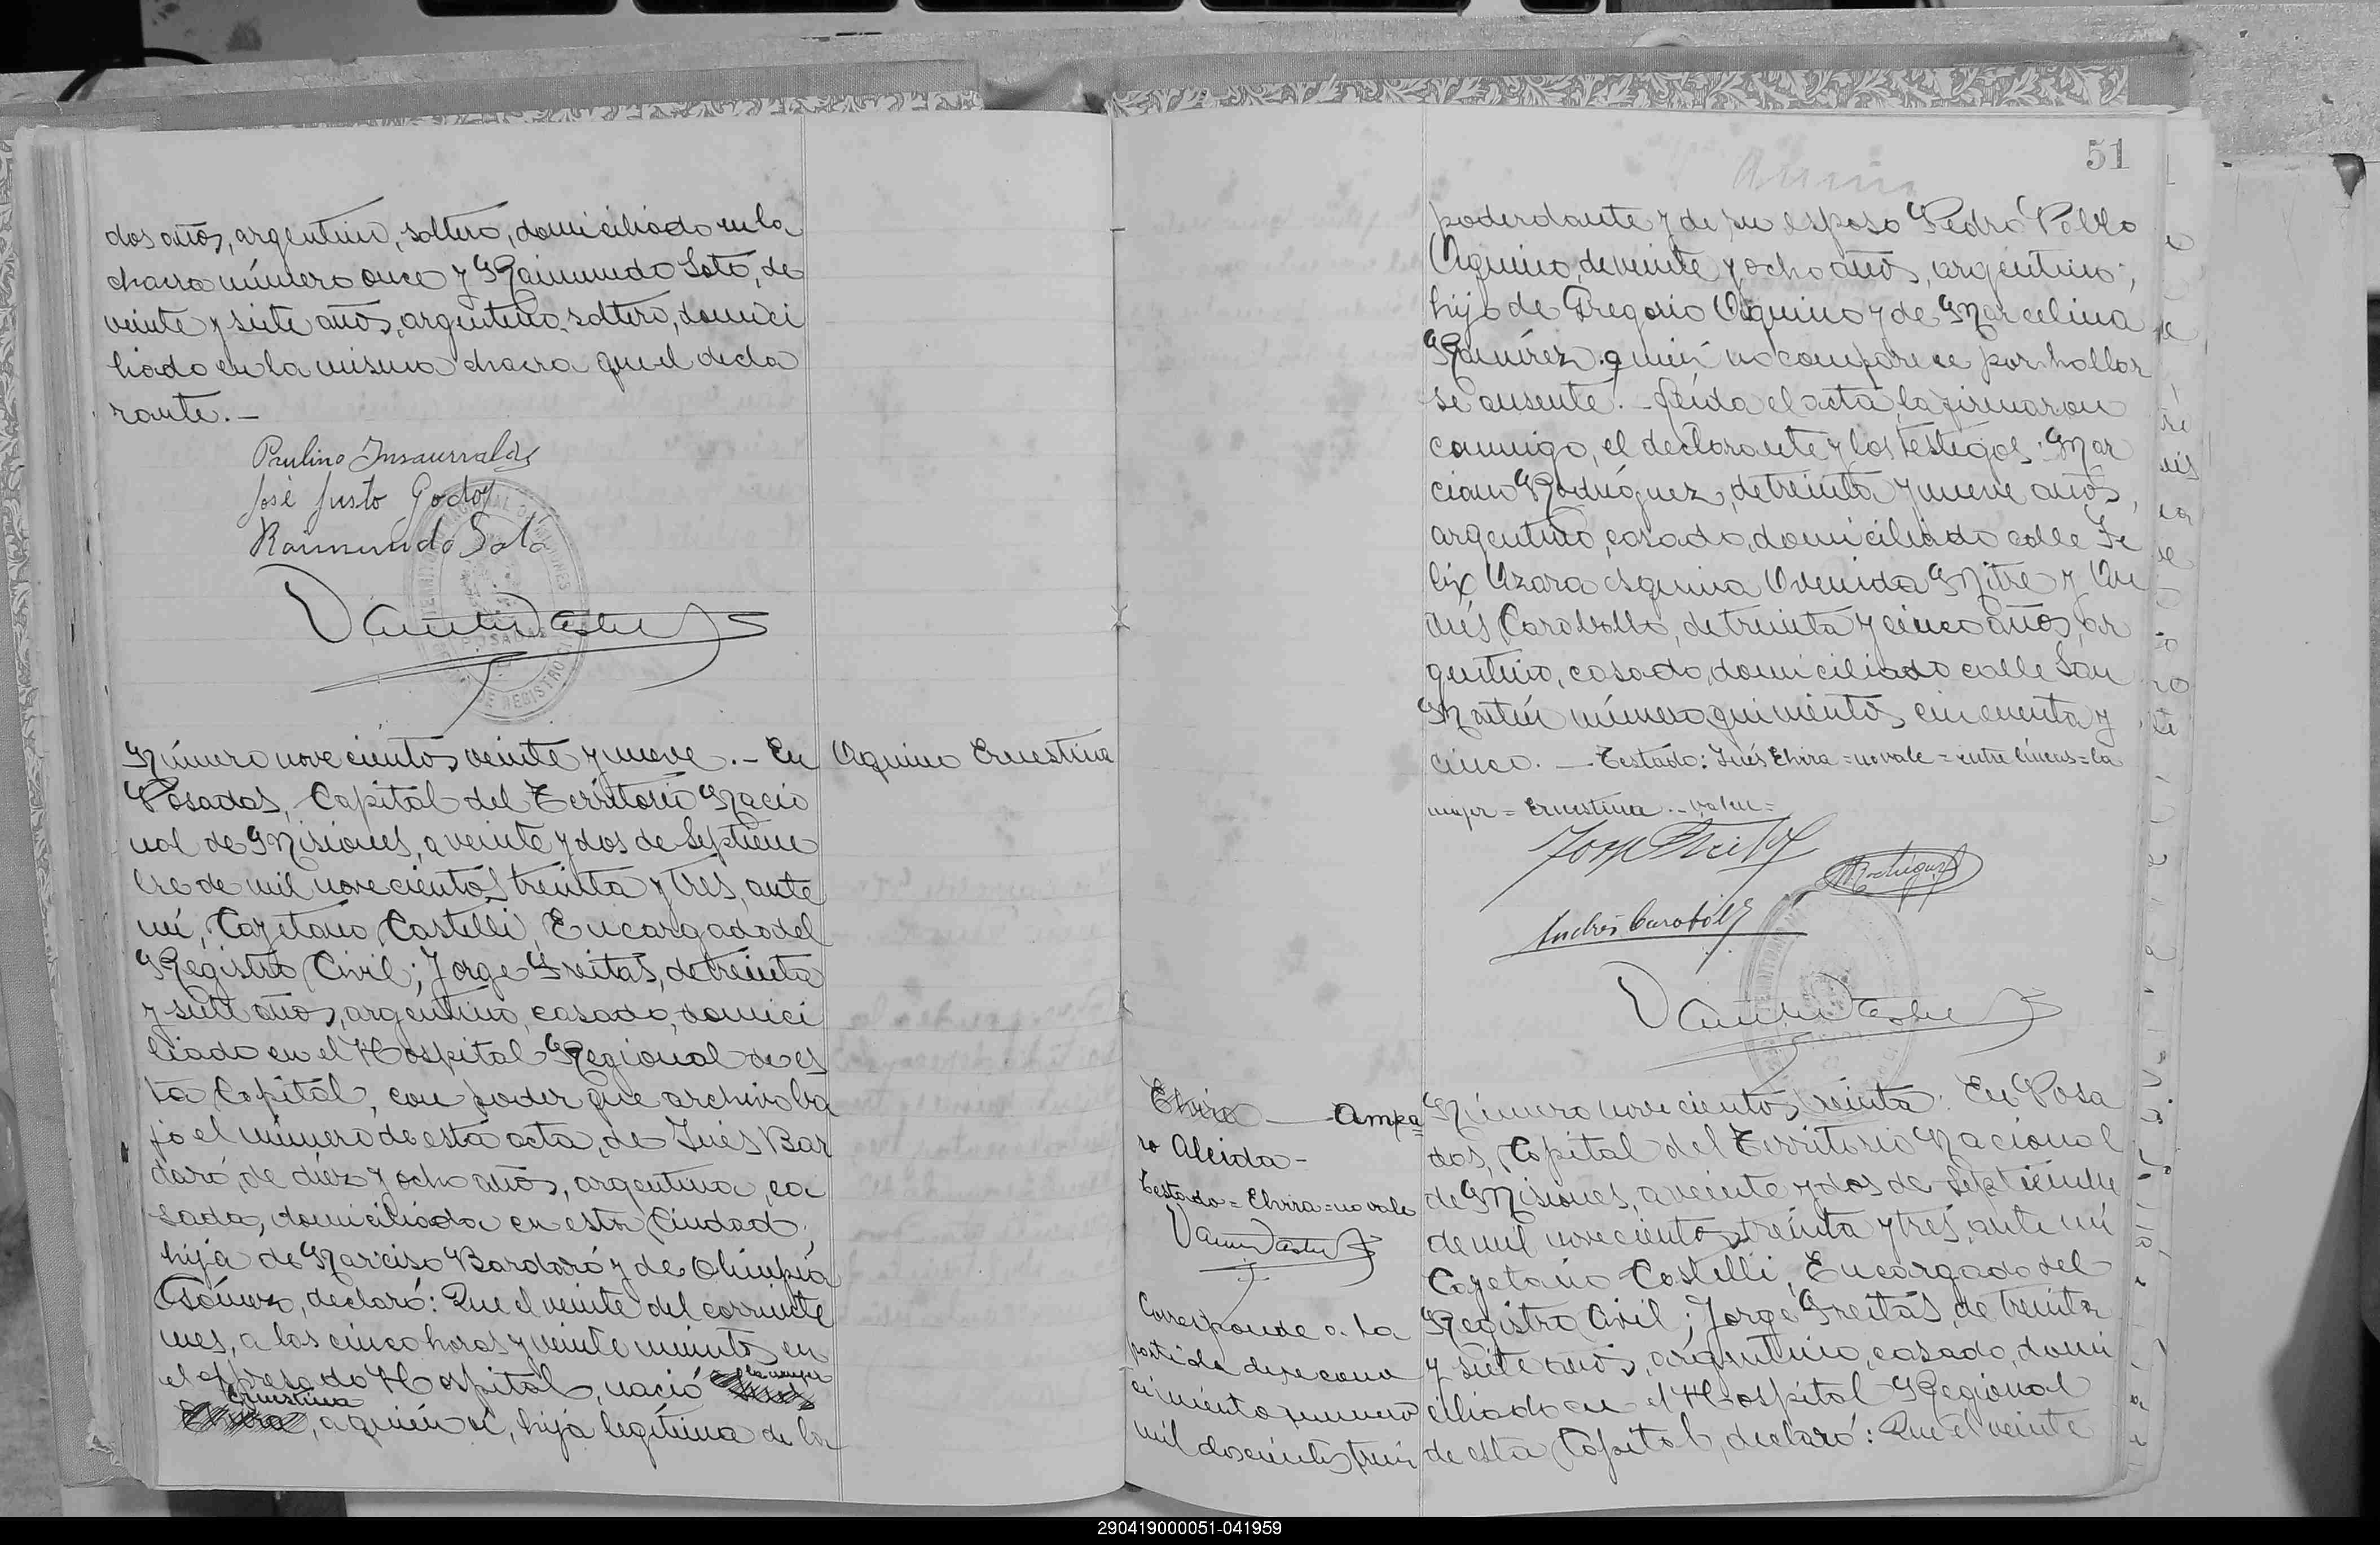 dos años, argentino, soltero, domiciliado en la
chacra número once y Raimundo Soto, de
veinte y siete años, argentino, soltero, domici
liado en la misma chacra que el decla
rante.—
Paulino Insaurralde
José Justo Godoy
Raimundo Soto
Número novecientos veinte y nueve.- En
Posadas, Capital del Territorio Nacio
nal de Misiones, a veinte y dos de Septiem
bre de mil novecientos treinta y tres, ante
mí, Cayetano Castelli, Encargado del
Registro Civil; Jorge Freitas, de treinta
y siete años, argentino, casado, domici
liado en el Hospital Regional de es
ta Capital, con poder que archivo ba
jo el número de esta acta, de Inés Bar
daró, de diez y ocho años, argentina, ca
sada, domiciliada en esta Ciudad,
hija de Narciso Bardaró y de Olimpia
Gómez, declaró: Que el veinte del corriente
mes, a las cinco horas y veinte minutos, en
el expresado Hospital, nació la mujer
Ernestina, a quién ví, hija legítima de la
Aquino Ernestina
51
poderdante y de su esposo Pedro Pablo
Aquino, de veinte y ocho años, argentino;
hijo de Gregorio Aquino y de Marcelina
Ramírez, quien no comparece por hallar
se ausente.- Leída el acta, la firmaron
conmigo, el declarante y los testigos: Mar
ciano Rodríguez, de treinta y nueve años,
argentino, casado, domiciliado calle Fe
lix Azara esquina Avenida Mitre y An
drés Caraballo, de treinta y cinco años, ar
gentino, casado, domiciliado calle San
Martín número quinientos cincuenta y
cinco.— Testado: Inés Elvira = no vale = entre líneas = la
mujer = Ernestina.- valen =
Andrés Caraballo
Elvira — Ampa
ro Aleida-
Testado = Elvira = no vale
Corresponde a la
partida de recono
cimiento número
mil doscientos trein
Número novecientos treinta. En Posa
das, Capital del Territorio Nacional
de Misiones, a veinte y dos de Septiembre
de mil novecientos treinta y tres, ante mí
Cayetano Castelli, Encargado del
Registro Civil; Jorge Freitas, de treinta
y siete años, argentino, casado, domi
ciliado en el Hospital Regional
de esta Capital, declaró: Que el veinte
290419000051-041959